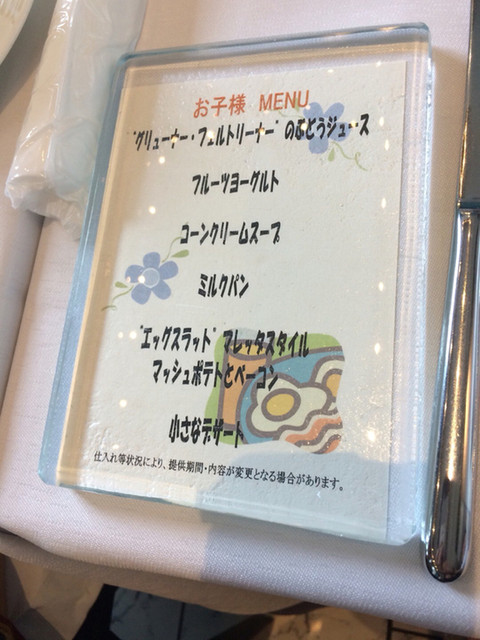 お子様 MENU
"グリューナー・フェルトリーナー"のぶどうジュース
フルーツヨーグルト
コーンクリームスープ
ミルクパン
"エッグスラット" フレッタスタイル
マッシュポテトとベーコン
小さなデザート
仕入れ等状況により、提供期間・内容が変更となる場合があります。